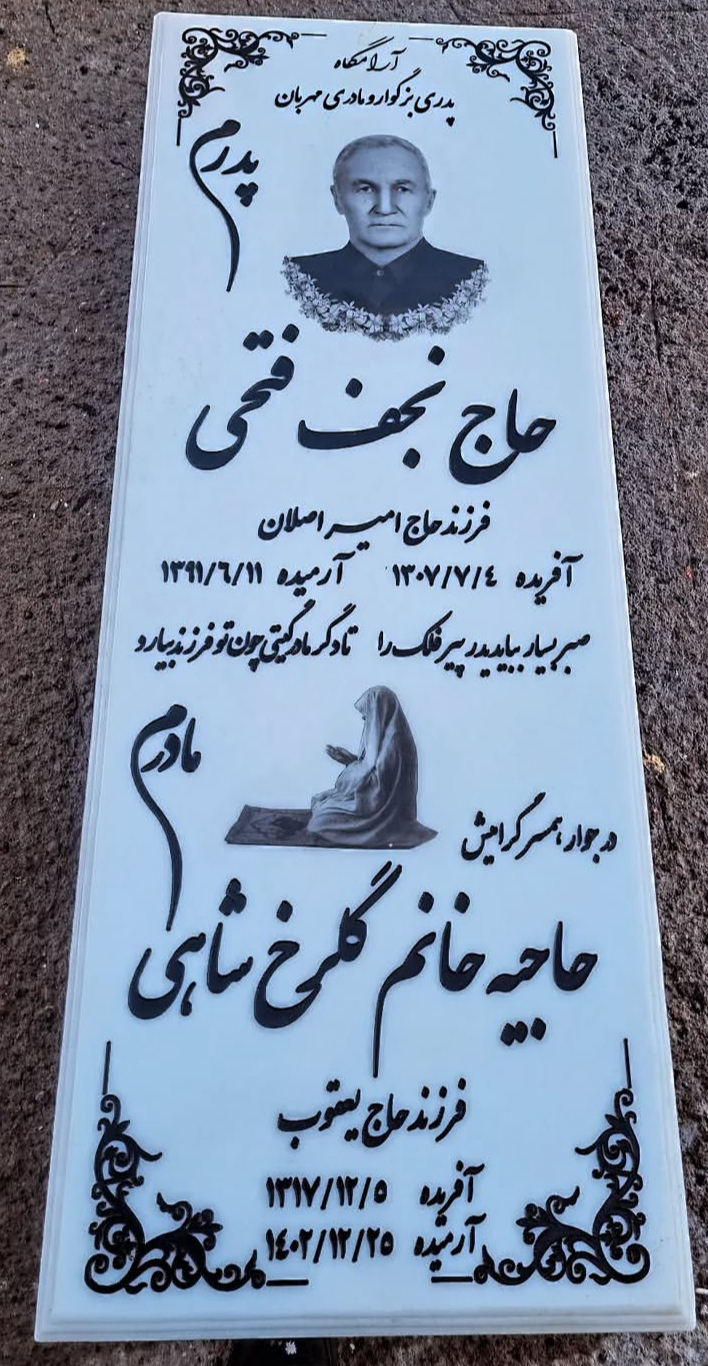 آرامگاه
پدری بزرگوار و مادری مهربان
پدرم
حاج نجف فتحی
فرزند حاج امیر اصلان
آفریده ۱۳۰۷/۷/٤ آرمیده ۱۳۹۱/٦/۱۱
صبر بسیار بباید پدر پیر فلک را تا دگر مادر گیتی چون تو فرزند بیارد
مادرم
در جوار همسر گرامیش
حاجیه خانم گلرخ شاهی
فرزند حاج یعقوب
آفریده ۱۳۱۷/۱۲/۵
آرمیده ۱٤۰۲/۱۲/۲۵